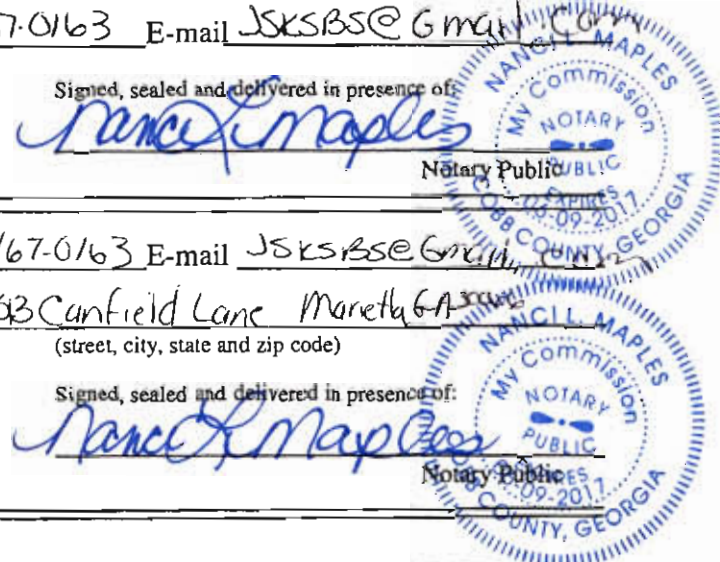 7-0163 E-mail JSKSBS@Gmail.com
Signed, sealed and delivered in presence of:
Nanci L Maples
Notary Public
NANCI L. MAPLES
My Commission
NOTARY
PUBLIC
EXPIRES
05-09-2017
COBB COUNTY, GEORGIA
167-0163 E-mail JSKSBS@Gmail.com
Canfield Lane Marietta GA
(street, city, state and zip code)
Signed, sealed and delivered in presence of:
Nanci L Maples
Notary Public
NANCI L. MAPLES
My Commission
NOTARY
PUBLIC
09-2017
COUNTY, GEORGIA